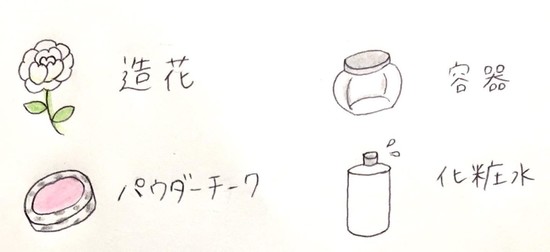 造花
容器
パウダーチーク
化粧水